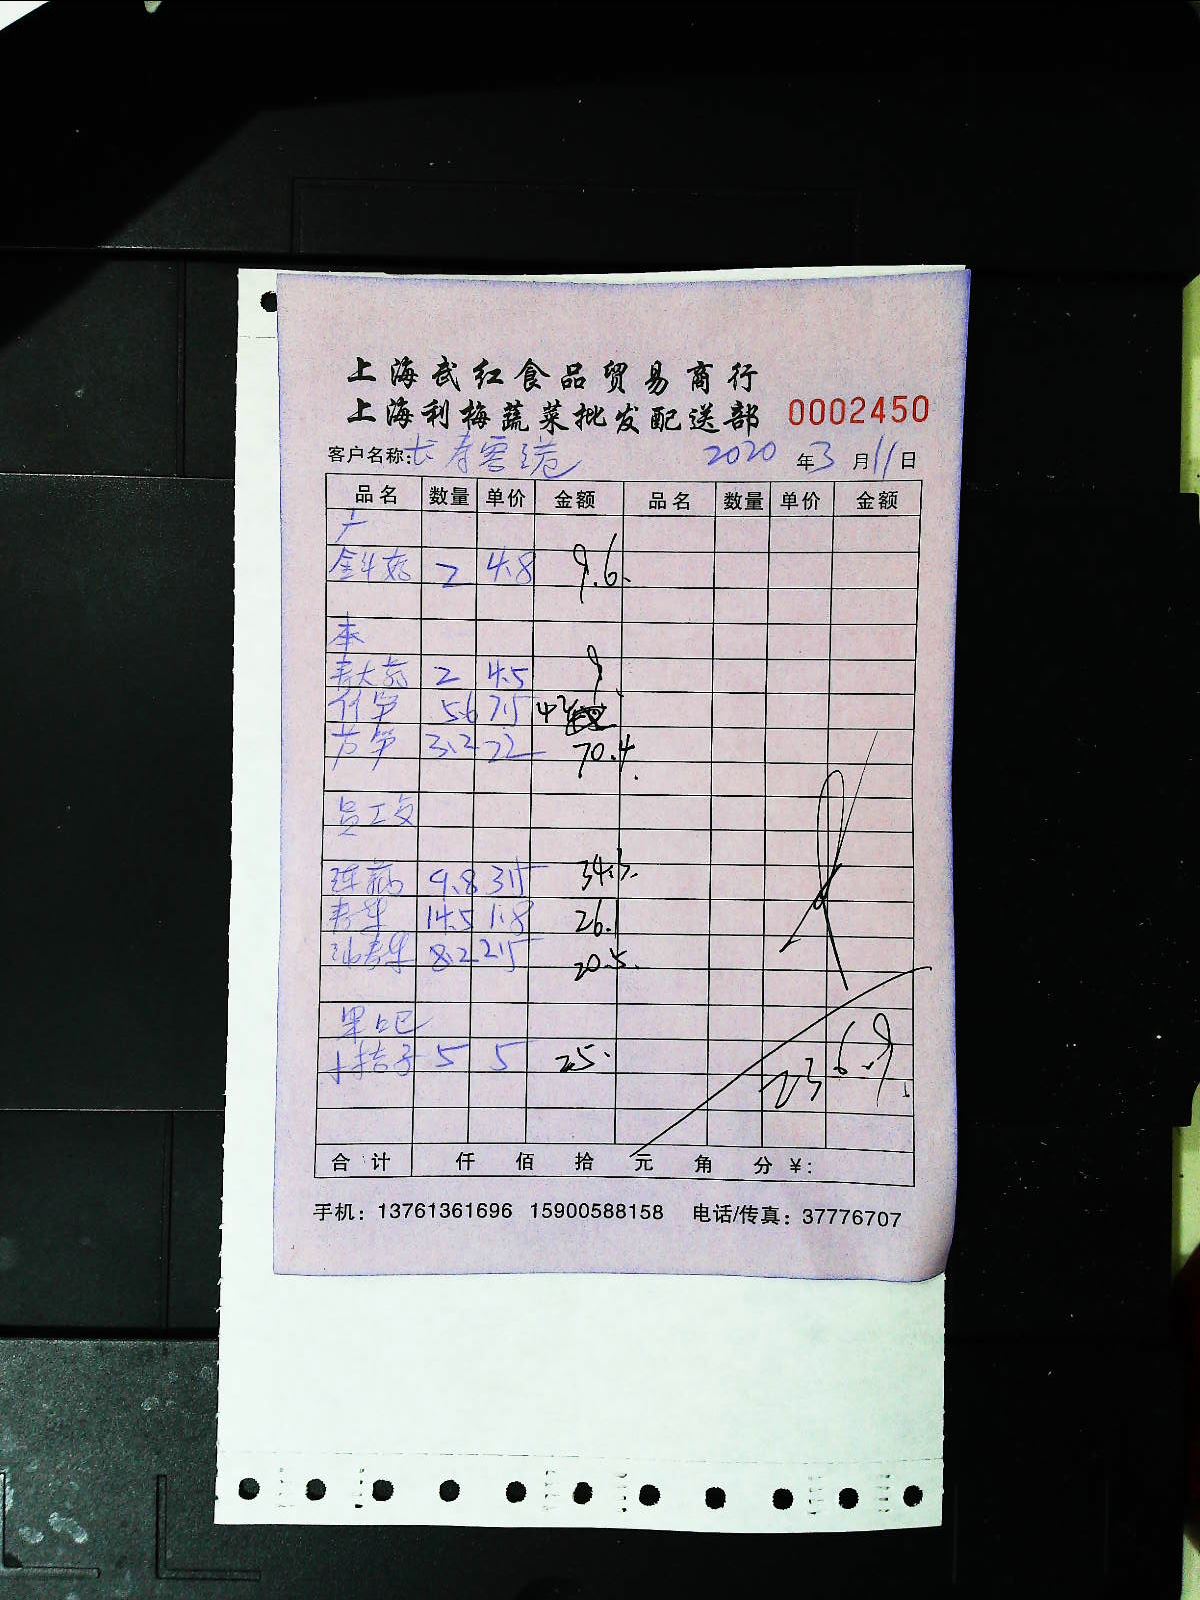 上海武红食品贸易商行
上海利梅蔬菜批发配送部 0002450
客户名称: 长寿 2020 年 3 月 11 日
品名 数量 单价 金额 品名 数量 单价 金额
广
金针菇 2 4.8 9.6
本
2 4.5 9
竹笋 5.6 7.5 42
芦笋 3.2 22 70.4
员工
9.8 3.5 34.3
14.5 1.8 26.1
8.2 2.5 20.5
果吧
小桔子 5 5 25
236.9
合计 仟 佰 拾 元 角 分 ¥:
手机: 13761361696 15900588158 电话/传真: 37776707